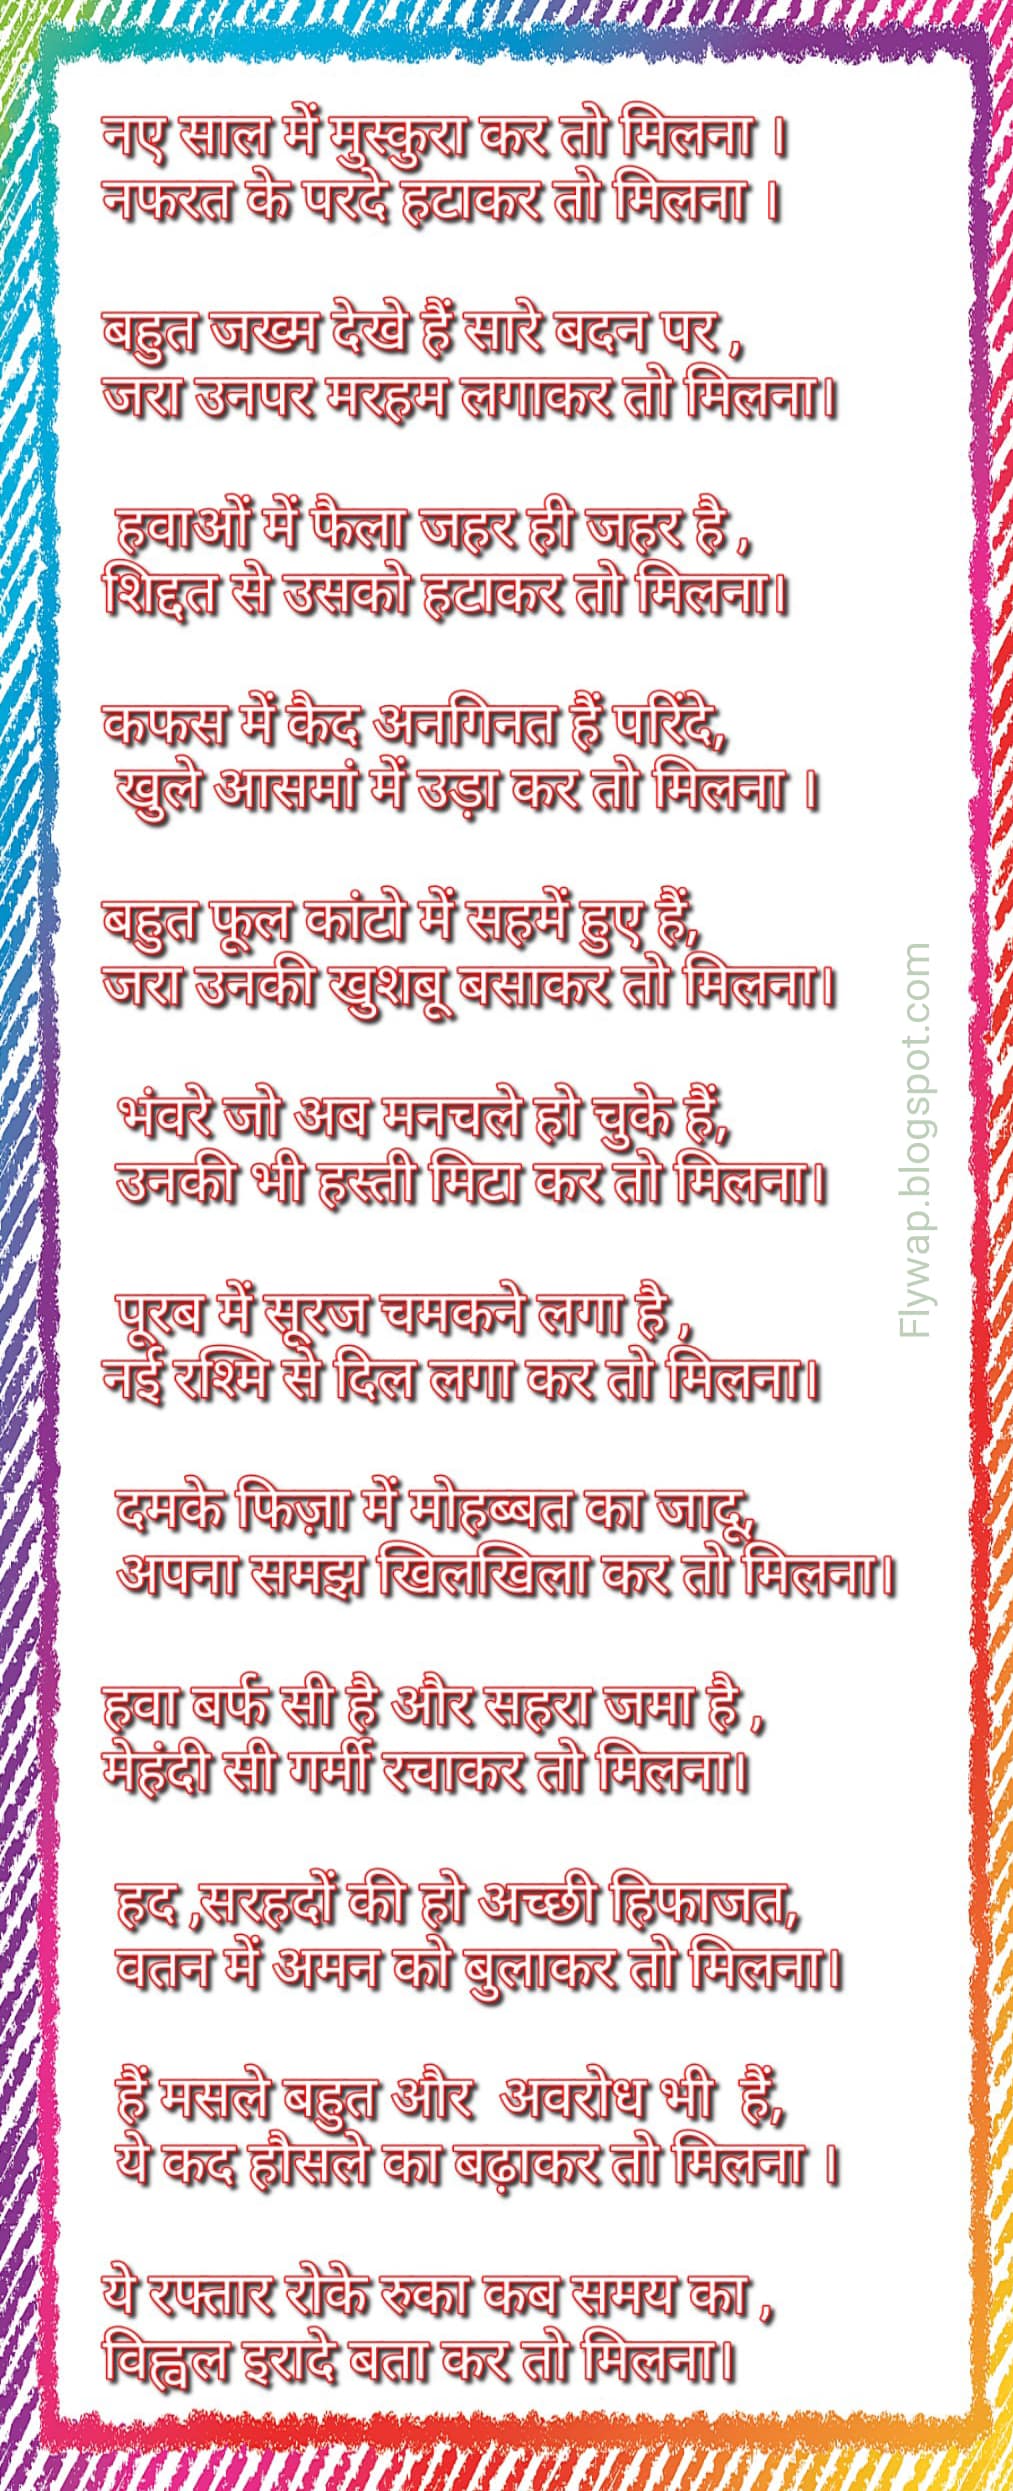 नए साल में मुस्कुरा कर तो मिलना ।
नफरत के परदे हटाकर तो मिलना ।
बहुत जख्म देखे हैं सारे बदन पर ,
जरा उनपर मरहम लगाकर तो मिलना।
हवाओं में फैला जहर ही जहर है ,
शिद्दत से उसको हटाकर तो मिलना।
कफस में कैद अनगिनत हैं परिंदे,
खुले आसमां में उड़ा कर तो मिलना ।
बहुत फूल कांटो में सहमें हुए हैं,
जरा उनकी खुशबू बसाकर तो मिलना।
भंवरे जो अब मनचले हो चुके हैं,
उनकी भी हस्ती मिटा कर तो मिलना।
पूरब में सूरज चमकने लगा है ,
नई रश्मि से दिल लगा कर तो मिलना।
दमके फिज़ा में मोहब्बत का जादू,
अपना समझ खिलखिला कर तो मिलना।
हवा बर्फ सी है और सहरा जमा है ,
मेहंदी सी गर्मी रचाकर तो मिलना।
हद ,सरहदों की हो अच्छी हिफाजत,
वतन में अमन को बुलाकर तो मिलना।
हैं मसले बहुत और अवरोध भी हैं,
ये कद हौसले का बढ़ाकर तो मिलना ।
ये रफ्तार रोके रुका कब समय का ,
विह्वल इरादे बता कर तो मिलना।
Flywap.blogspot.com